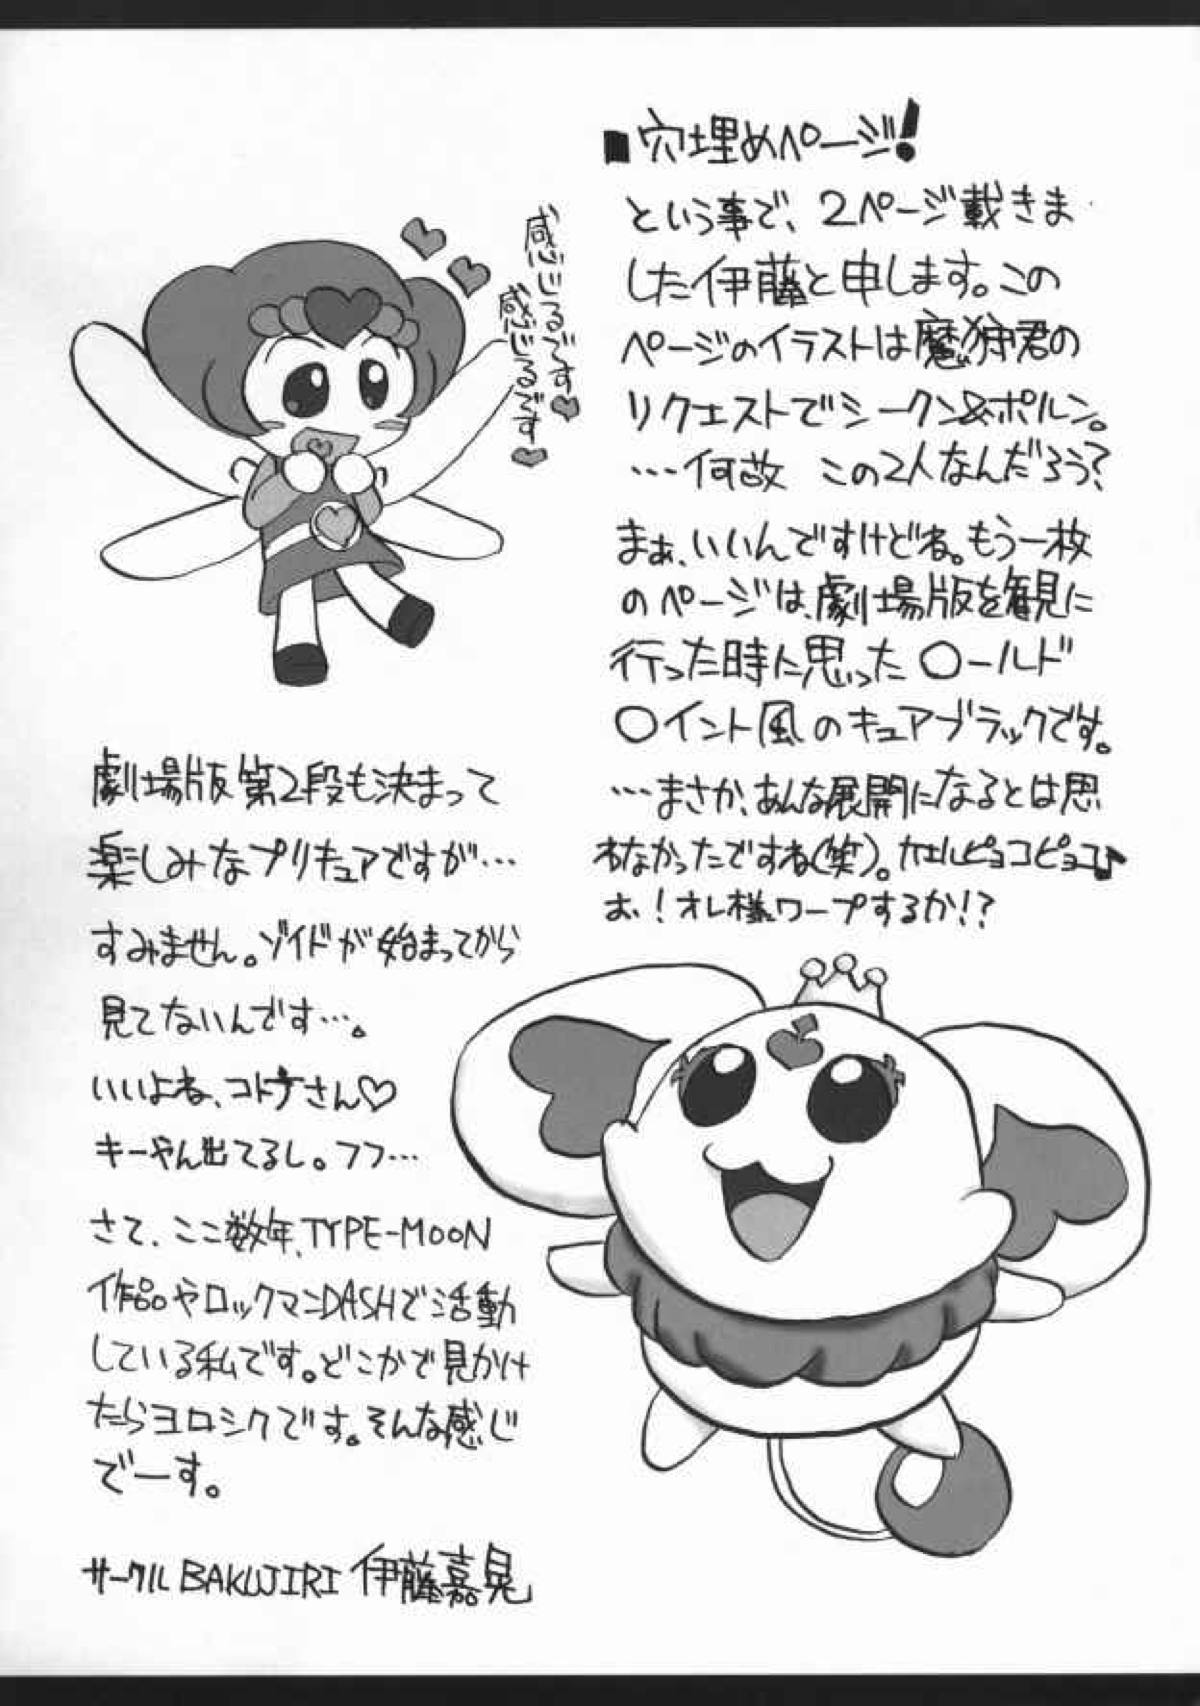 ■穴埋めページ!
という事で、2ページ戴きま
した伊藤と申します。この
ページのイラストは魔狩君の
リクエストでシークン&ポルン。
…何故 この2人なんだろう?
まぁ、いいんですけどね。もう一枚
のページは、劇場版を観に
行った時に思った〇ールド
〇イント風のキュアブラックです。
…まさか、あんな展開になるとは思
わなかったですね(笑)。カエルピョコピョコ♪
お!オレ様ワープするか!?
感じるです♥
感じるです♥
劇場版第2段も決まって
楽しみなプリキュアですが…
すみません。ゾイドが始まってから
見てないんです…。
いいよね、コトナさん♡
キーやん出てるし。フフ…
さて、ここ数年、TYPE-MOON
作品やロックマンDASHで活動
している私です。どこかで見かけ
たらヨロシクです。そんな感じ
でーす。
サークル BAKUJIRI 伊藤嘉晃